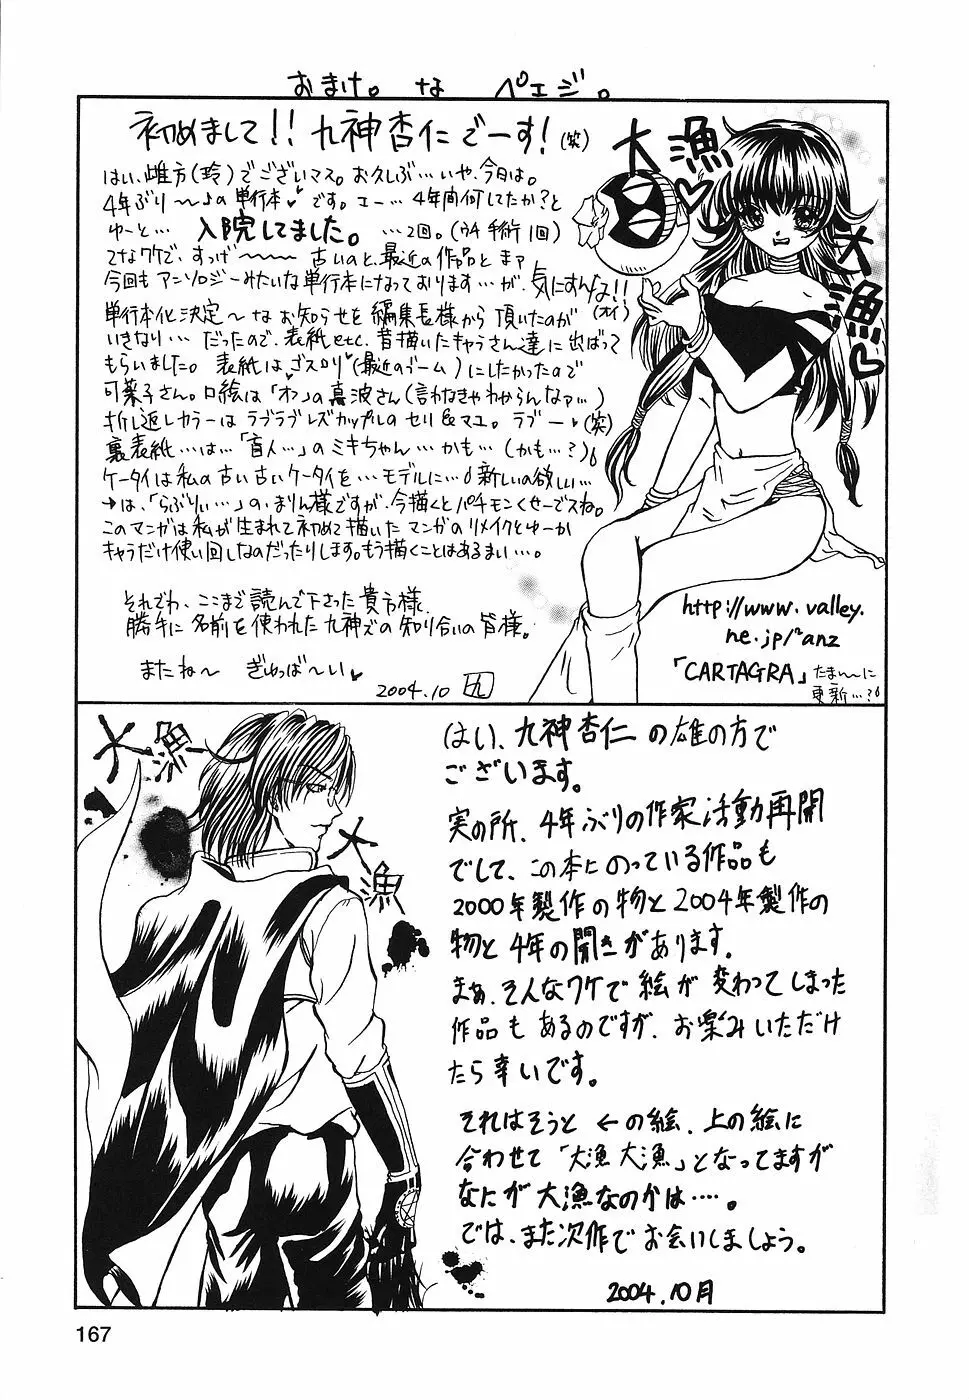 おまけ。 な ペェジ。
初めまして!! 九神杏仁でーす! (笑)
はい、雌方(玲)でございマス。お久しぶ…いや、今日は。
4年ぶり〜♪の単行本♥です。エー…4年間何してたか?と
ゆーと… 入院してました。 …2回。(ウチ手術1回)
てなワケで、すっげ〜〜〜古いのと、最近の作品とまァ
今回もアンソロジーみたいな単行本になっております…が、気にすんな!!
(オイ)
単行本化決定〜なお知らせを編集長様から頂いたのが
いきなり…だったので、表紙etc. 昔描いたキャラさん達に出ばって
もらいました。表紙はゴスロリ♥(最近のブーム)にしたかったので
可菜子さん。口絵は「オン」の真波さん(言わなきゃわからんなァ…)
折し返しカラーはラブラブレズカップルのセリ&マユ。ラブー♥(笑)
裏表紙…は…「盲人…」のミキちゃん…かも…(かも…?)
ケータイは私の古い古いケータイを…モデルに…新しいの欲しい…
→は、「らぶりぃ…」の、まりん様ですが、今描くとパチモンくせーでスね。
このマンガは私が生まれて初めて描いたマンガのリメイクとゆーか
キャラだけ使い回しなのだったりします。もう描くことはあるまい…。
それでわ、ここまで読んで下さった貴方様、
勝手に名前を使われた九神ズの知り合いの皆様。
またね〜 ぎゅっば〜い♥
2004.10 九
大漁♥
大漁♥
http://www.valley.
ne.jp/~anz
「CARTAGRA」たま〜に
更新…?
大漁
大漁
はい、九神杏仁の雄の方で
ございます。
実の所、4年ぶりの作家活動再開
でして、この本にのっている作品も
2000年製作の物と2004年製作の
物と4年の開きがあります。
まぁ、そんなワケで絵が変わってしまった
作品もあるのですが、お楽みいただけ
たら幸いです。
それはそうと ←の絵、上の絵に
合わせて「大漁大漁」となってますが
なにが大漁なのかは…。
では、また次作でお会いしましょう。
2004.10月
167